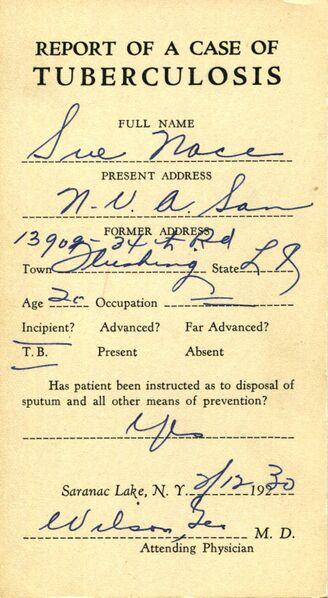 REPORT OF A CASE OF
TUBERCULOSIS
FULL NAME
Sue Nace
PRESENT ADDRESS
N.V.A. San
FORMER ADDRESS
13909 - 34th Rd
Town Flushing State L I
Age 20 Occupation
Incipient? Advanced? Far Advanced?
T.B. Present Absent
Has patient been instructed as to disposal of
sputum and all other means of prevention?
Yes
Saranac Lake, N. Y. 2/12 1930
Wilson, M. D.
Attending Physician